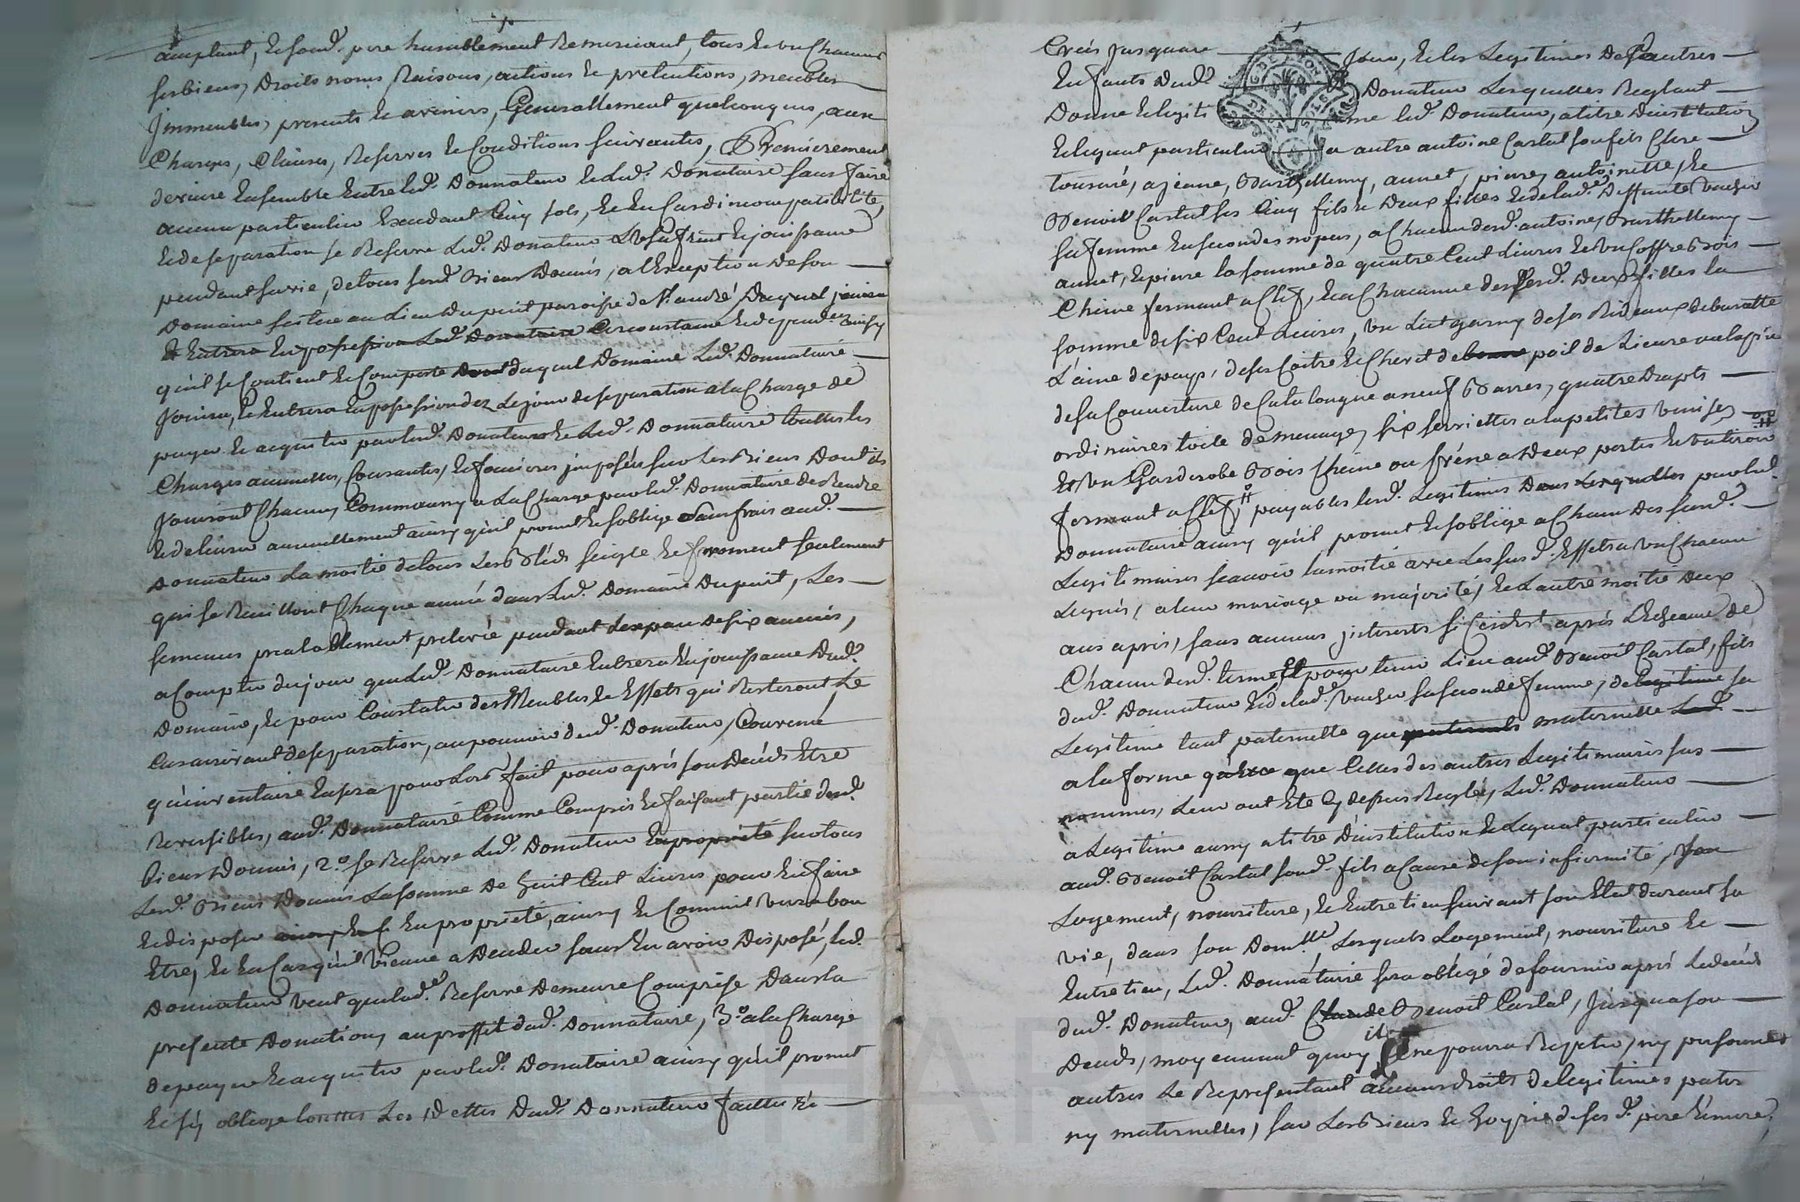 acceptant, et sond. pere humblement Remerciant, tous et un Chacuns
ses biens, Droits noms, Raisons, actions et pretentions, meubles
Jmmeubles, presents et avenirs, Generallement quelconques, aux
Charges, Clauses, Reserves et Conditions suivantes, Premierement
de vivre Ensemble Entre led. Donnateur et led. Donataire sans faire
aucun particulier Excedant Cinq sols, et En Cas d'incompatibilité,
et de separation se Reserve led. Donateur les fruits et jouissance
pendant sa vie, de tous sesd. Biens Donnés, a l'Exception de son
Domaine scitue au Lieu du puit paroisse de St. andré, Duquel
et Entrera En possession Led. Donataire Circonstances et dependces. ainsy
qu'il se Contient et Comporte Dont duquel Domaine led. Donnataire
jouira, et Entrera En possession dez le jour de separation a la Charge de
payer et acquiter par led. Donateur et led. Donnataire touttes les
Charges annuelles, Courantes, et foncieres jmposées sur les Biens Dont ils
Jouiront Chacuns, Comme aussy a La Charge par led. Donnataire de Rendre
et delivrer annuellement ainsy qu'il promet et s'oblige sans frais aud.
Donnateur La moitié de tous Les Bleds seigle et froment seulement
qui se Recuilliront Chaque année dans led. Domaine Du puit, Les
semences prealablement prelevée pendant l'espace de six années,
a Compter du jour que led. Donnataire Entrera En jouissance Dud.
Domaine, et pour Constater des Meubles et Effets qui Resteront, le
Cas arrivant de separation, au pouvoir dud. Donateur, Convenu,
qu'inventaire En sera pour Lors fait pour aprés son Decéds Etre
Reversibles, aud. Donnataire Comme Compris et faisant partie desd.
biens Donnés, 2.° se Reserve Led. Donateur En propriété sur tous
Lesd. Biens Donnés La somme de huit Cent Livres pour En faire
et disposer En propriété, ainsy et Comme il verra bon
Etre, et En Cas qu'il Vienne a Deceder sans En avoir Disposé, led.
Donnateur veut que lad.e Reserve Demeure Comprise Dans la
presente Donation, au proffit dud. Donnataire, 3.° a la Charge
de payer et acquiter par led. Donataire ainsy qu'il promet
et s'y oblige touttes Les Dettes Dud. Donnateur faittes et
Creés jusques a ce Jour, et les Legitimes Des autres
Enfants Dud. Donateur Lesquelles Reglant
Donne et legue led. Donateur, a titre D'institution
et leguat particulier a autre antoine Castal son fils Clerc
tonsuré, a jeanne, Barthellemy, annet, pierre, antoinette, et
Benoit Castal ses Cinq fils et Deux filles et de lad.e Deffunte
sa femme En secondes nopces, a Chacun desd. antoine, Barthellemy
annet, et pierre la somme de quatre Cent Livres et un Coffre Bois
Chene fermant a Clef, et a Chacunne desd. Deux filles la
somme de six Cent Livres, un Lict garny de ses Rideaux de buratte
L'aine de pays, de ses Coitre et Chevet de poil de Lievre
de sa Couverture de Catalongne a neuf Barres, quatre Drapts
ordinaires toile de menage, six serviettes a la petites Venise,
et un Garderobe Bois Chene ou frene a Deux portes et un tiroir
fermant a Clef, payables lesd. Legitimes par led.
Donnataire ainsy qu'il promet et s'oblige a Chacun des susd.
Legitimaires sçeavoir la moitié avec Les susd. Effets a un Chacun
Legués, a leur mariage ou majorité, et l'autre moitié Deux
ans aprés, sans aucuns jnterests si Ce n'est aprés L'Echeance de
Chacun desd. termes Et pour tenir Lieu aud. Benoit Castal, fils
dud. Donnateur et de lad. sa seconde femme, de legitime sa
Legitime tant paternelle que maternelle
a la forme que Celles des autres Legitimaires sus
nommés, Leur ont Eté Cy dessus Reglés, Led. Donnateur
a Legitime aussy a titre D'institution et Leguat particulier
aud. Benoit Castal sond. fils a Cause de son infirmité, son
Logement, nourriture, et Entretien suivant son Etat durant sa
vie, dans son Domlle, Lesquels Logement, nourriture et
Entretien, Led. Donnataire sera obligé de fournir aprés Le deceds
dud. Donateur, aud. Benoit Castal, Jusqu'a son
Deceds, moyennant quoy il ne pourra Repeter, ny personnes
autres Le Representant aucuns droits de legitimes pater
ny maternelles, sur Les Biens et hoyrie de sesd. pere et mere,